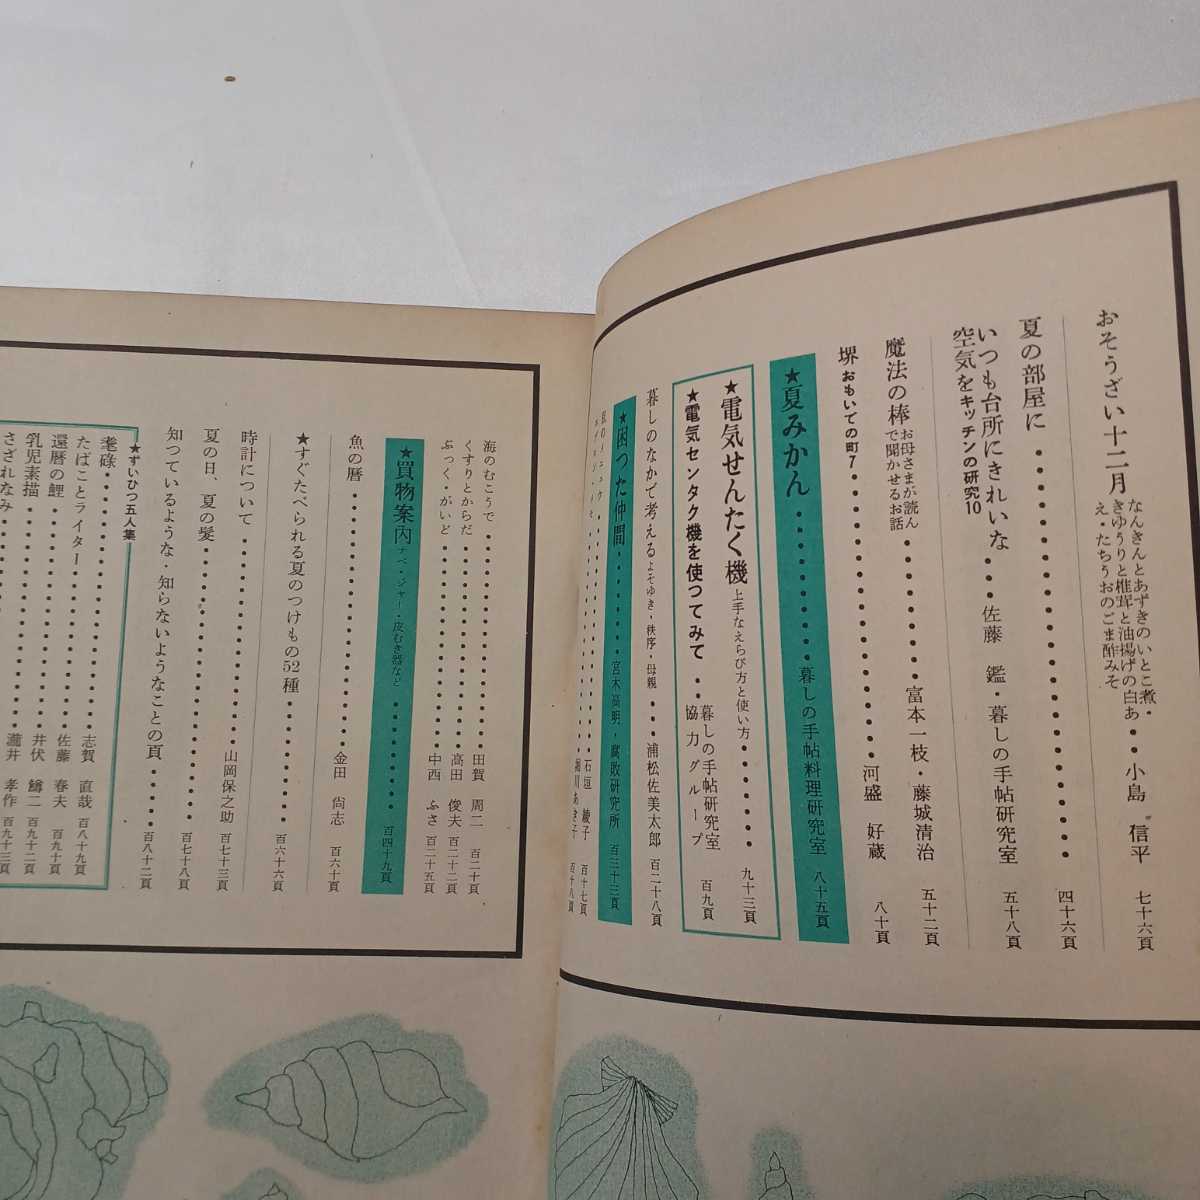 おそうざい十二月
なんきんとあずきのいとこ煮・
きゆうりと椎茸と油揚げの白あ
え・たちうおのごま酢みそ
小島 信平 七十六頁
夏の部屋に 四十六頁
いつも台所にきれいな
空気をキッチンの研究10
佐藤 鑑・暮しの手帖研究室 五十八頁
魔法の棒
お母さまが読ん
で聞かせるお話
富本一枝・藤城清治 五十二頁
堺 おもいでの町7 河盛 好蔵 八十頁
★夏みかん 暮しの手帖料理研究室 八十五頁
★電気せんたく機 上手なえらび方と使い方 九十三頁
★電気センタク機を使つてみて
暮しの手帖研究室
協力グループ
百九頁
暮しのなかで考える よそゆき・秩序・母親 浦松佐美太郎 百二十八頁
★困つた仲間 宮木高明・腐敗研究所 百三十三頁
石垣 綾子 百十七頁
あき子 百十八頁
海のむこうで 田賀 周二 百二十頁
くすりとからだ 高田 俊夫 百二十二頁
ぶっく・がいど 中西 ふさ 百二十五頁
★買物案内 ナベ・ジャー・皮むき器など 百四十九頁
魚の暦 金田 尚志 百六十頁
★すぐたべられる夏のつけもの52種 百六十六頁
時計について 山岡保之助 百七十三頁
夏の日、夏の髪 百七十八頁
知つているような・知らないようなことの頁 百八十二頁
★ずいひつ五人集
耄碌 志賀 直哉 百八十九頁
たばことライター 佐藤 春夫 百九十頁
還暦の鯉 井伏 鱒二 百九十二頁
乳児素描 瀧井 孝作 百九十三頁
さざれなみ